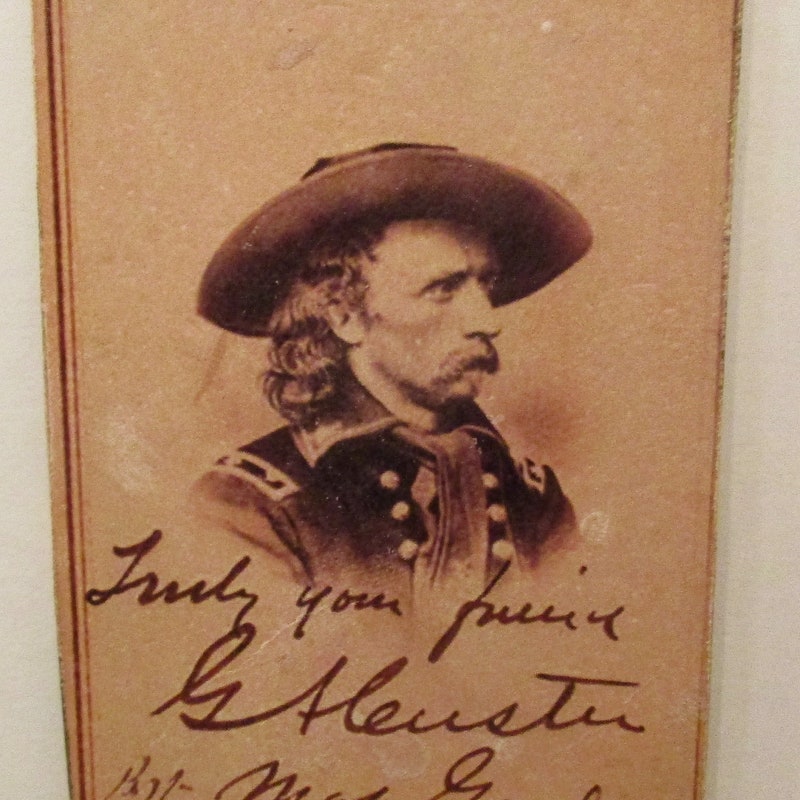 Truly your friend
G A Custer
Bvt Maj Genl